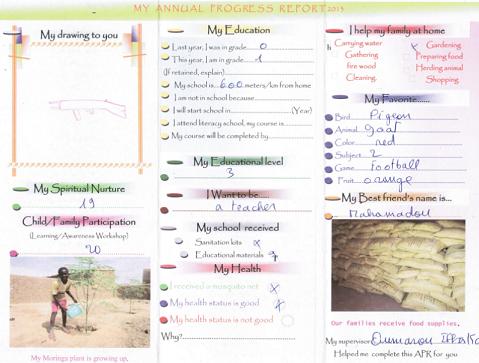 MY ANNUAL PROGRESS REPORT 2013
My drawing to you
My Spiritual Nurture
19
Child/Family Participation
(Learning/Awareness Workshop)
20
My Moringa plant is growing up.
My Education
Last year, I was in grade 0
This year, I am in grade 1
(If retained, explain)
My school is 600 meters/km from home
I am not in school because
I will start school in (Year)
I attend literacy school, my course is
My course will be completed by
My Educational level
3
I Want to be....
a teacher
My school received
Sanitation kits x
Educational materials 9
My Health
I received a mosquito net x
My health status is good x
My health status is not good
Why?
I help my family at home
Carrying water
Gathering
fire wood
Cleaning.
x Gardening
Preparing food
Herding animal
Shopping
My Favorite......
Bird Pigeon
Animal goat
Color red
Subject 2
Game Football
Fruit orange
My Best friend's name is...
Mahamadou
Our families receive food supplies.
My supervisor Oumarou
Helped me complete this APR for you